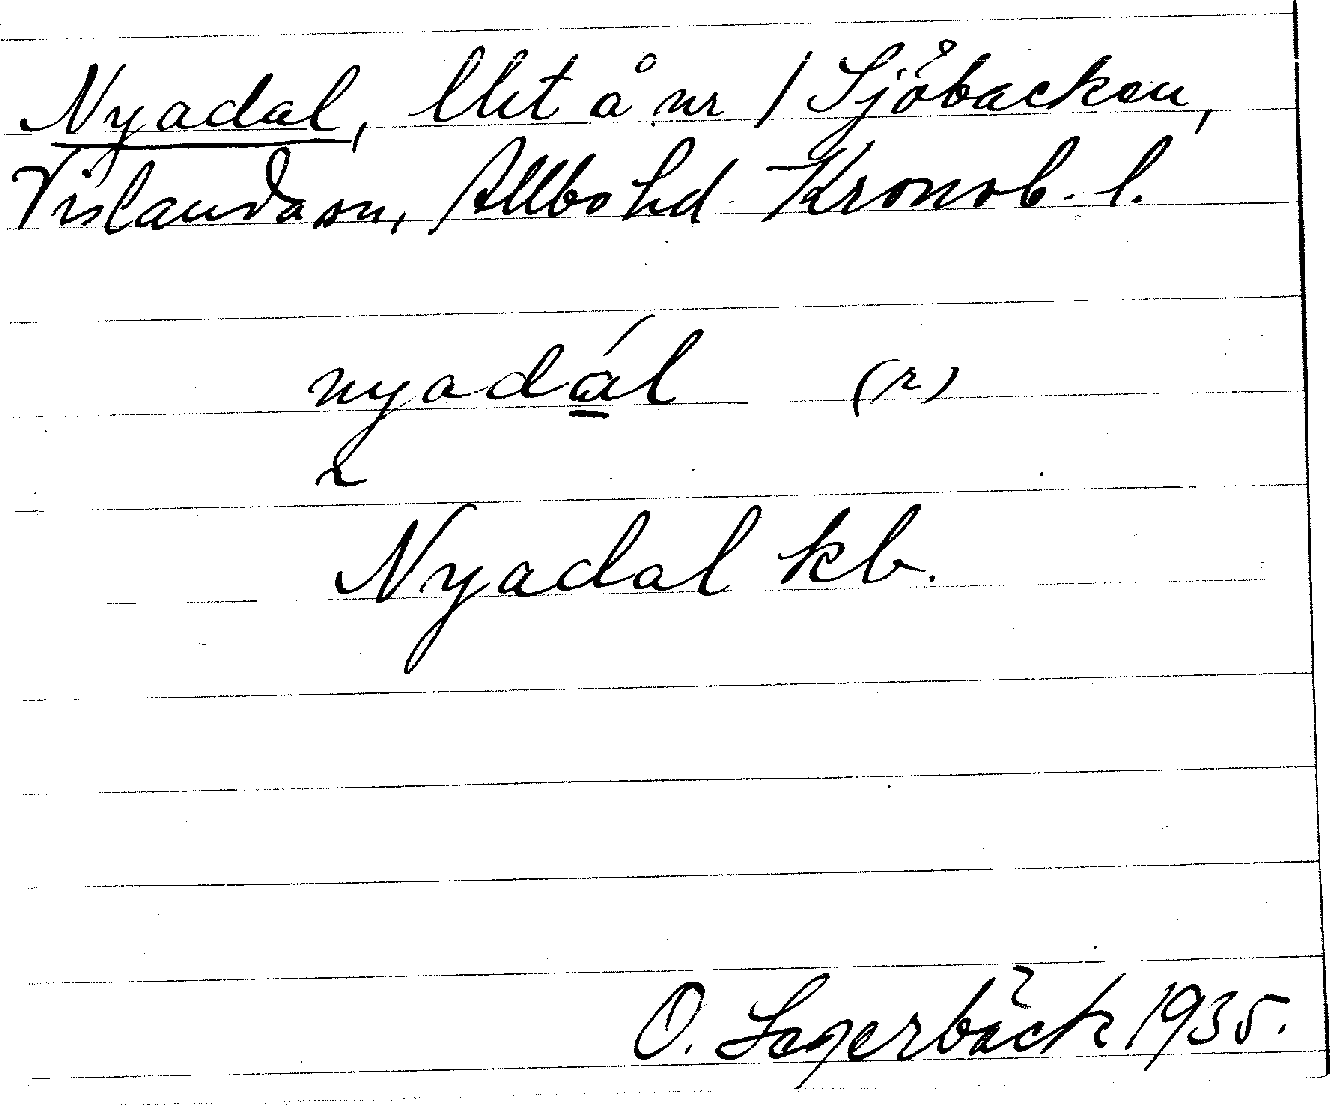 Nyadal, lht å nr 1 Sjöbacken,
Vislanda sn, Allbo hd Kronob. l.
nyadál (r)
Nyadal kb.
O. Lagerbäck 1935.